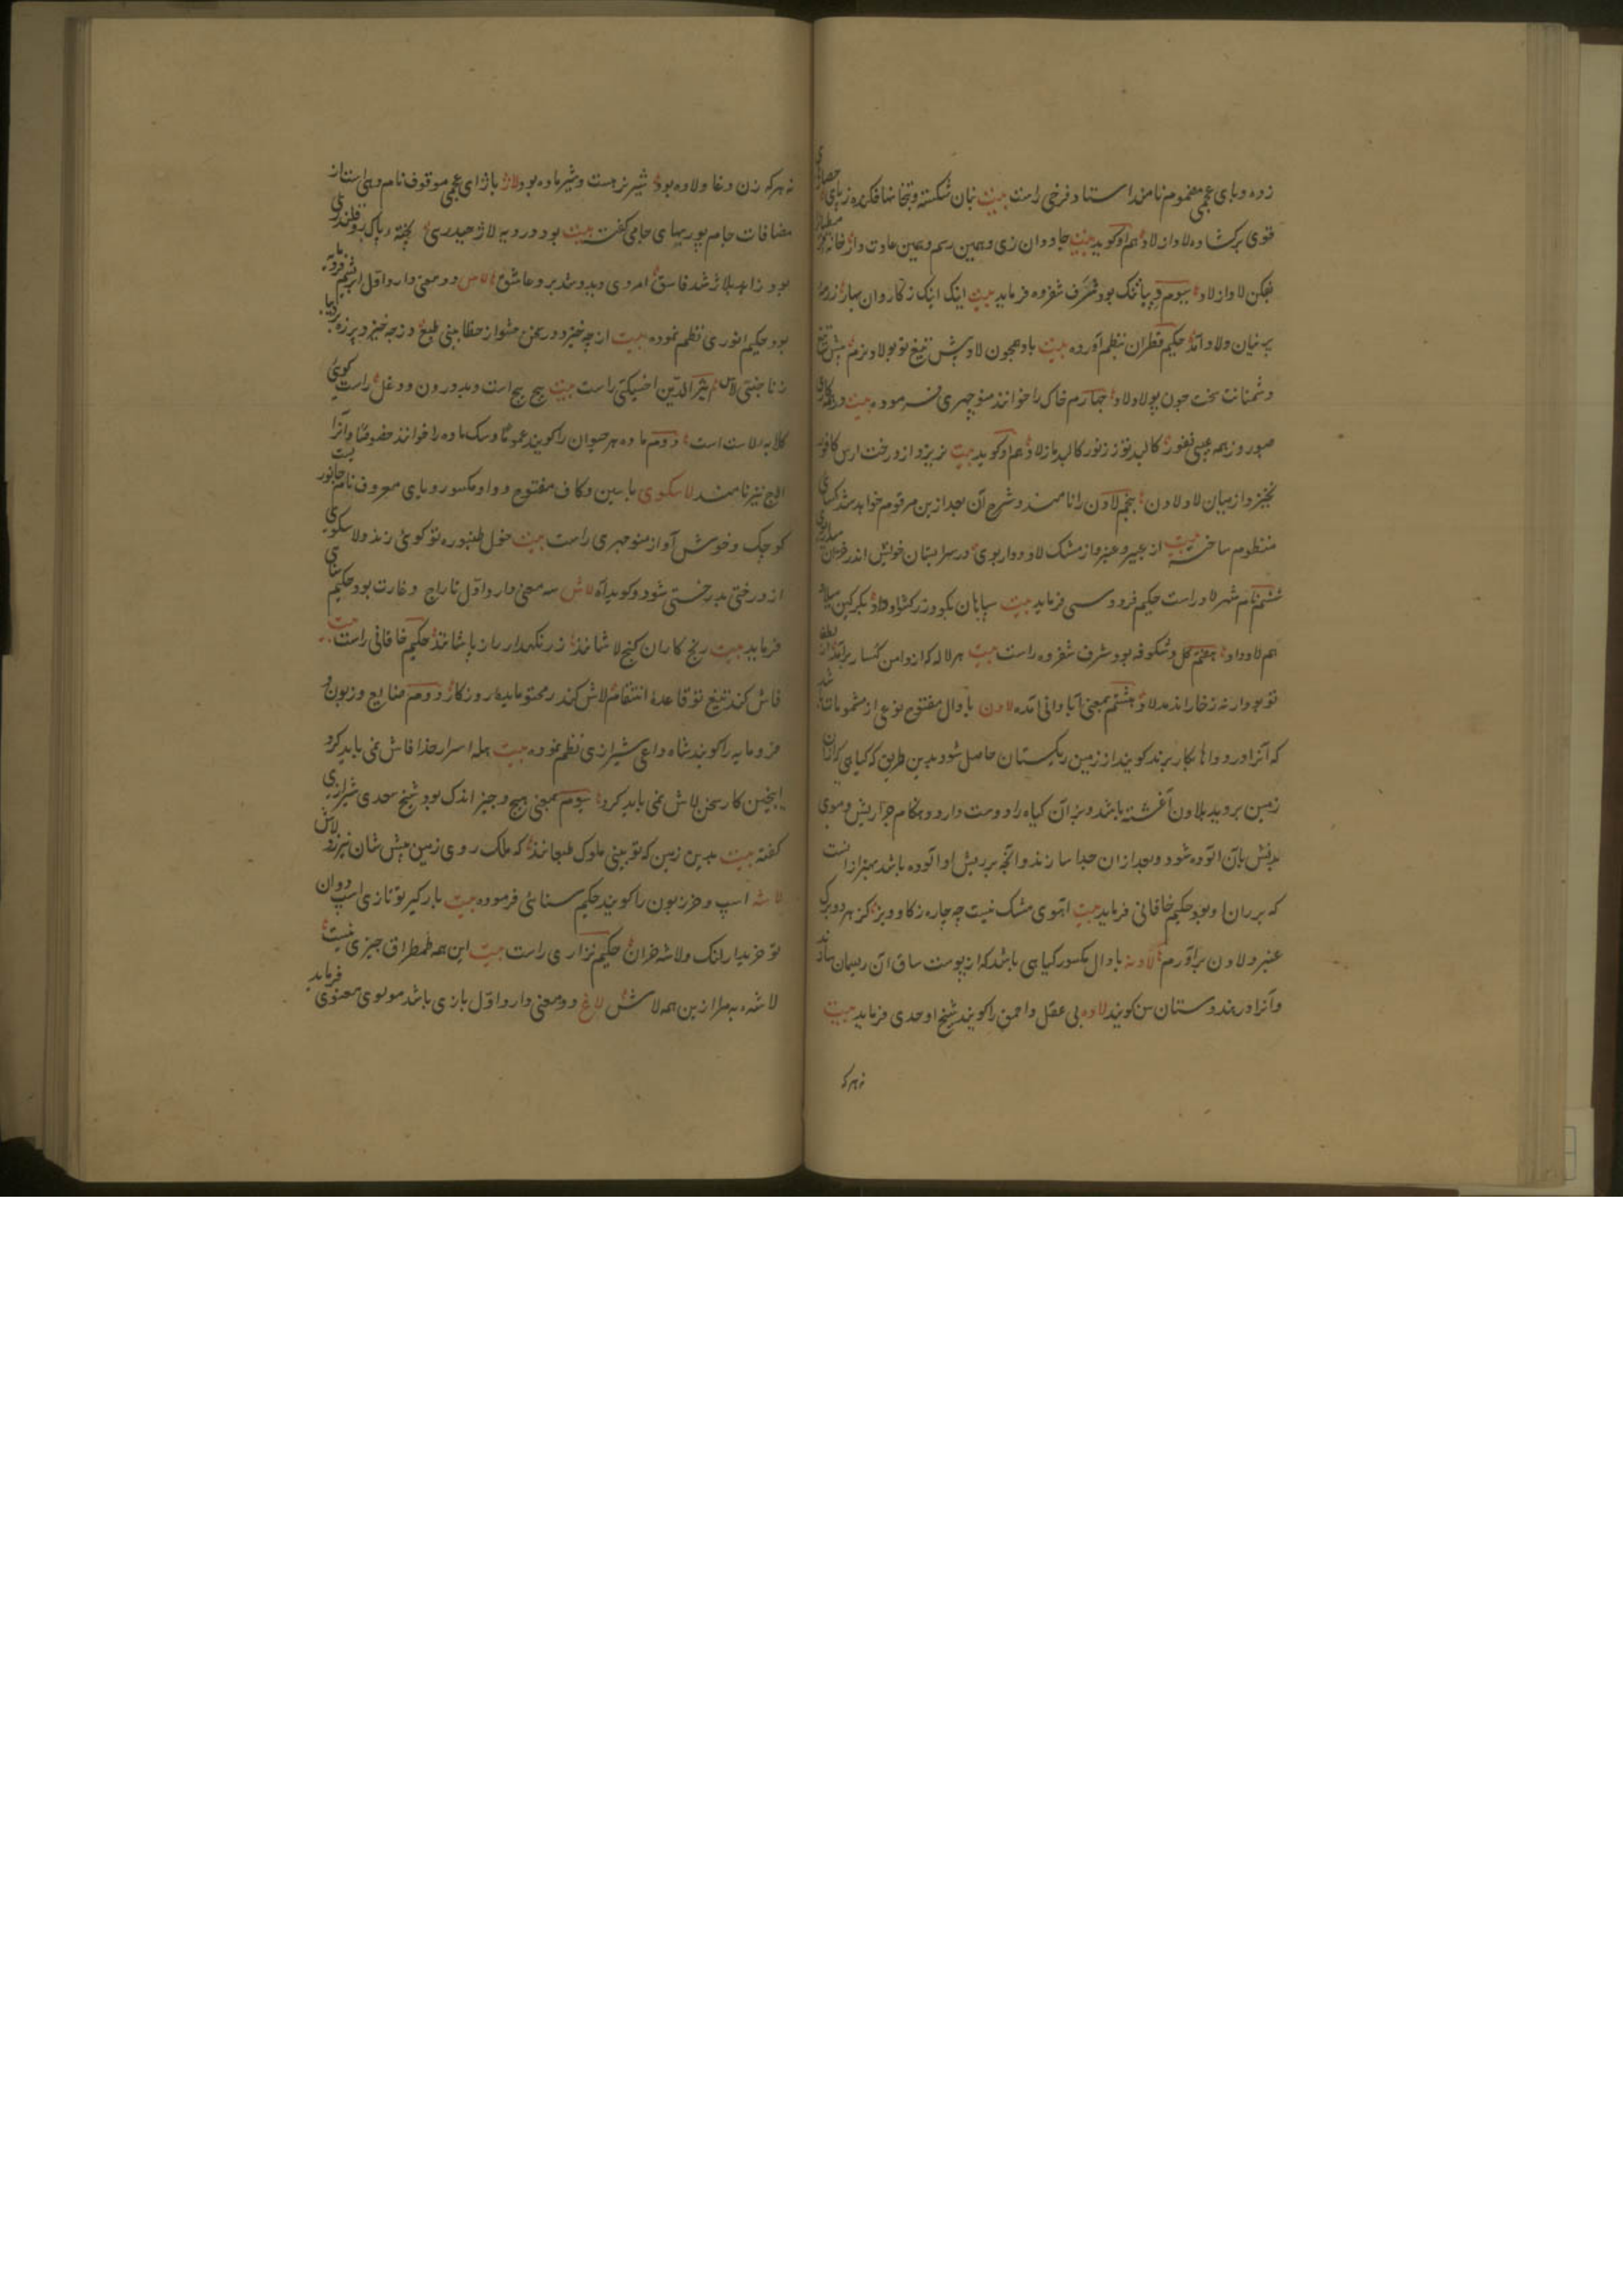 زده و بای عجمی مضموم نامند استاد فرخی راست بیت بتان شکسته و بتخانها فکنده ز پای حصارهای
قوی برکشاده لاد از لاد هم او کوید بیت جاودان زی و همین رسم و همین عادت دار خانه
بفکن لاد از لاد سیوم دیبا تنک بود شرف شفروه فرماید بیت اینک اینک ز کاروان بهار
پرنیان و لاد آمد حکیم قطران نظم آورده بیت باد همچون لاد پیش تیغ تو پولاد نرم پیش تیغ
دشمنانت سخت چون پولاد لاد چهارم خاک را خوانند منوچهری فرموده بیت
کالبد تو ز نور کالبد ما ز لاد هم او کوید بیت نریزد از درخت ارس کافور
نخیزد از میان لاد لادن پنجم لادن را نامند و شرح آن بعد ازین مرقوم خواهد شد کسای
منظوم ساخته بیت از عبیر و عنبر و از مشک و لاد و دار بوی در سرابستان خویش اندر
ششم نام شهر لاد راست حکیم فردوسی فرماید بیت بیابان
هم لاد داد هفتم کل و شکوفه بود شرف شفروه راست بیت هر لاله که از دامن کهسار برآمد از
هشتم بمعنی آبادانی آمده لادن با دال مفتوح نوعی از مشمومات
که آنرا در دواها بکار برند کویند از زمین ریکستان حاصل شود بدین طریق که کیاهی که از آن
زمین بروید بلادن آغشته باشد و بز آن کیاه را دوست دارد و هنکام چرا ریش و موی
بدنش بآن آلوده شود و بعد از آن جدا سازند و آنچه بر ریش او آلوده باشد بهتر از آنست
که بر ران او بود حکیم خاقانی فرماید بیت آهوی مشک نیست چه چاره ز کاو و بز کز هر دو برک
عنبر و لادن برآورم لادنه با دال مکسور کیاهی باشد که از پوست ساق آن ریسمان سازند
و آنرا در هندوستان سن کویند لاده بی عقل و احمق را کویند شیخ اوحدی فرماید بیت
نه هرکه
نه هرکه زن دغا و لاده بود شیر نر هست و شیر ماده بود لاژ با زای عجمی موقوف نام دهی است از
مضافات جام پور بهای جامی کفت بیت بود در دیه لاژ حیدری پخته و پاک رو قلندری
بود زاهد بلاژ شد فاسق امردی دید و شد برو عاشق لاس دو معنی دارد اول ابریشم فرومایه
بود حکیم انوری نظم نموده بیت از چه خیزد در سخن حشو از خطا بینی طبع وز چه خیزد پرزه بر دیبا
ز ناجنسی لاس اثیر الدین اخسیکتی راست بیت هیچ هیچ است و بدورون و دغل راست کویی
کلابه لاست است دوم ماده هر حیوان را کویند عموما و سک ماده را خوانند خصوصا و آنرا
لاج نیز نامند لاسکوی با سین و کاف مفتوح و واو مکسور و یای معروف نام جانوریست
کوچک و خوش آواز منوچهری راست بیت صلصل طنبوره تو کویی زند و لاسکوی
از درختی بدرختی شود و کوید آه لاش سه معنی دارد اول تاراج و غارت بود حکیم سنایی
فرماید بیت رنج کاران کنج لاشانند زر نکهدار رازپاشانند حکیم خاقانی راست بیت
فاش کند تیغ تو قاعده انتقام لاش کند رمح تو مایده روزکار دوم ضایع و زبون و
فرومایه را کویند شاه داعی شیرازی نظم نموده بیت هله اسرار خدا فاش نمی باید کرد
اینچنین کار سخن لاش نمی باید کرد سیوم بمعنی هیچ و چیز اندک بود شیخ سعدی شیرازی
کفته بیت بدین زمین که تو بینی ملوک طبعانند که ملک روی زمین پیش شان نیرزد لاش
لاشه اسپ و خر زبون را کویند حکیم سنایی فرموده بیت بارکیر تو تازی اسپ دوان
تو خریدار لنک و لاشه خران حکیم نزاری راست بیت این همه طمطراق چیزی نیست
لاشه به مرا ازین همه لاش لاغ دو معنی دارد اول بازی باشد مولوی معنوی فرماید